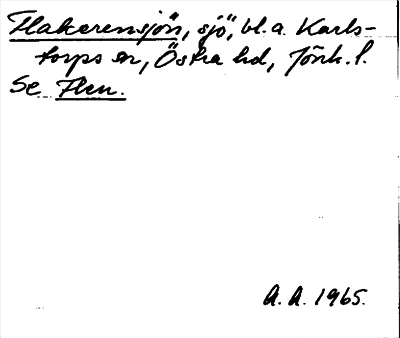 Flakerensjön, sjö, bl.a. Karls-
torps sn, Östra hd, Jönk. l.
Se Flen.
A. A. 1965.